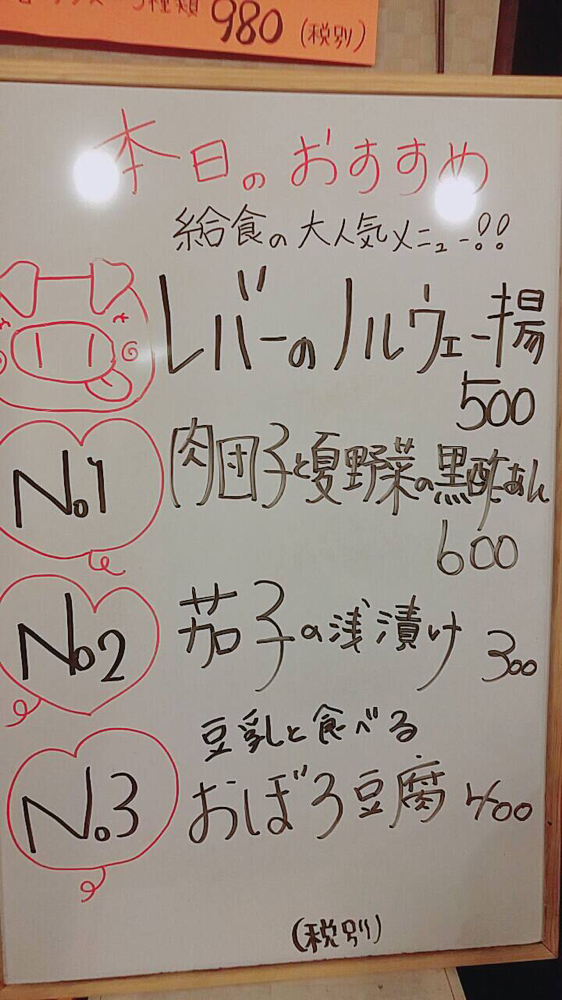 3種類 980 (税別)
本日のおすすめ
給食の大人気メニュー!!
レバーのノルウェー揚
500
No.1 肉団子と夏野菜の黒酢あん
600
No.2 茄子の浅漬け 300
豆乳と食べる
No.3 おぼろ豆腐 400
(税別)